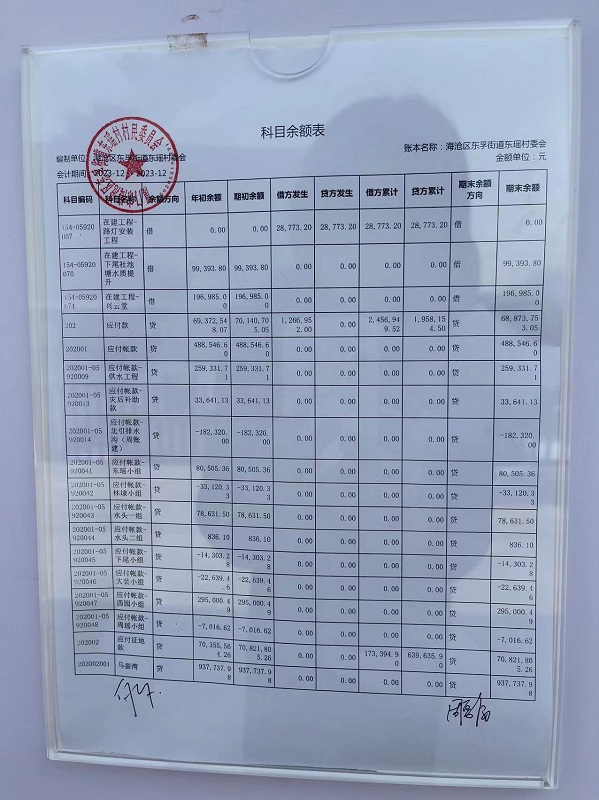 科目余额表
编制单位：海沧区东孚街道东瑶村委会 账本名称：海沧区东孚街道东瑶村委会
会计期间：2023-12 - 2023-12 金额单位：元
科目编码 科目名称 余额方向 年初余额 期初余额 借方发生 贷方发生 借方累计 贷方累计 期末余额方向 期末余额
154-05920007 在建工程-路灯安装工程 借 0.00 0.00 28,773.20 28,773.20 28,773.20 28,773.20 借 0.00
154-05920070 在建工程-下尾社池塘水质提升 借 99,393.80 99,393.80 0.00 0.00 0.00 0.00 借 99,393.80
154-05920074 在建工程-兴云堂 借 196,985.00 196,985.00 0.00 0.00 0.00 0.00 借 196,985.00
202 应付款 贷 69,372,548.07 70,140,705.05 1,266,952.00 0.00 2,456,949.52 1,958,154.50 贷 68,873,753.05
202001 应付帐款 贷 488,546.60 488,546.60 0.00 0.00 0.00 0.00 贷 488,546.60
202001-05920009 应付帐款-供水工程 贷 259,331.71 259,331.71 0.00 0.00 0.00 0.00 贷 259,331.71
202001-05920013 应付帐款-灾后补助款 贷 33,641.13 33,641.13 0.00 0.00 0.00 0.00 贷 33,641.13
202001-05920014 应付帐款-北引排水沟（周账建） 贷 -182,320.00 -182,320.00 0.00 0.00 0.00 0.00 贷 -182,320.00
202001-05920041 应付帐款-东瑶小组 贷 80,505.36 80,505.36 0.00 0.00 0.00 0.00 贷 80,505.36
202001-05920042 应付帐款-林埭小组 贷 -33,120.33 -33,120.33 0.00 0.00 0.00 0.00 贷 -33,120.33
202001-05920043 应付帐款-水头一组 贷 78,631.50 78,631.50 0.00 0.00 0.00 0.00 贷 78,631.50
202001-05920044 应付帐款-水头二组 贷 836.10 836.10 0.00 0.00 0.00 0.00 贷 836.10
202001-05920045 应付帐款-下尾小组 贷 -14,303.28 -14,303.28 0.00 0.00 0.00 0.00 贷 -14,303.28
202001-05920046 应付帐款-大芸小组 贷 -22,639.46 -22,639.46 0.00 0.00 0.00 0.00 贷 -22,639.46
202001-05920047 应付帐款-西园小组 贷 295,000.49 295,000.49 0.00 0.00 0.00 0.00 贷 295,000.49
202001-05920048 应付帐款-周瑶小组 贷 -7,016.62 -7,016.62 0.00 0.00 0.00 0.00 贷 -7,016.62
202002 应付征地款 贷 70,355,564.26 70,821,805.26 0.00 0.00 173,394.90 639,635.90 贷 70,821,805.26
202002001 马銮湾 贷 937,737.98 937,737.98 0.00 0.00 0.00 0.00 贷 937,737.98